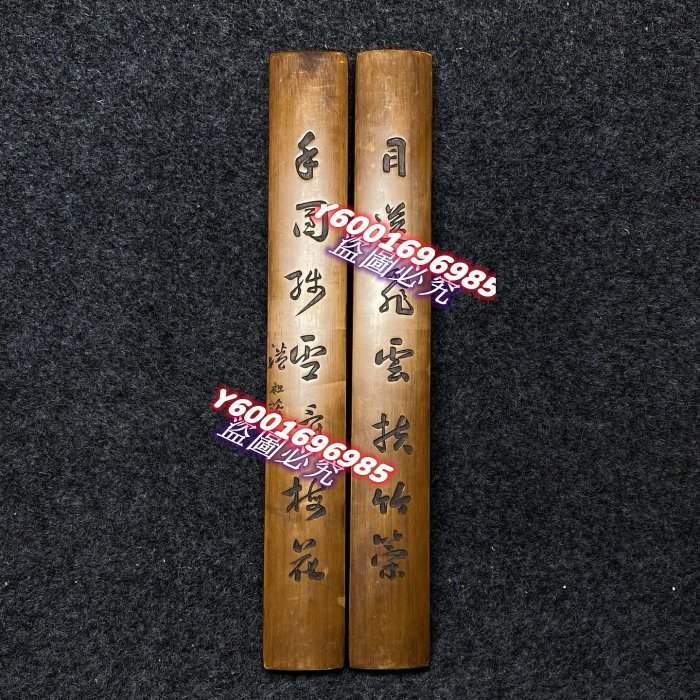 目送飛雲扶竹策
手團殘雪 梅花
祖
Y6001696985
盜圖必究
Y6001696985
盜圖必究